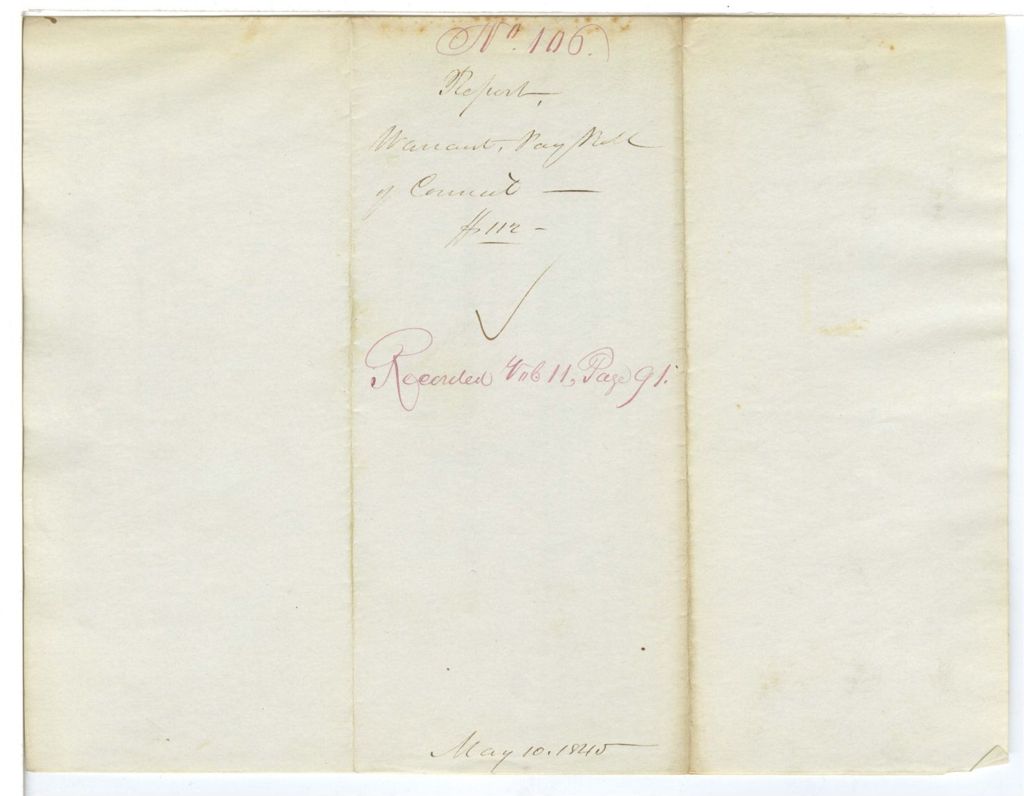 No. 106.
Report,
Warrant, Pay Roll
of Council —
$112 -
Recorded Vol 11, Page 91.
May 10. 1845